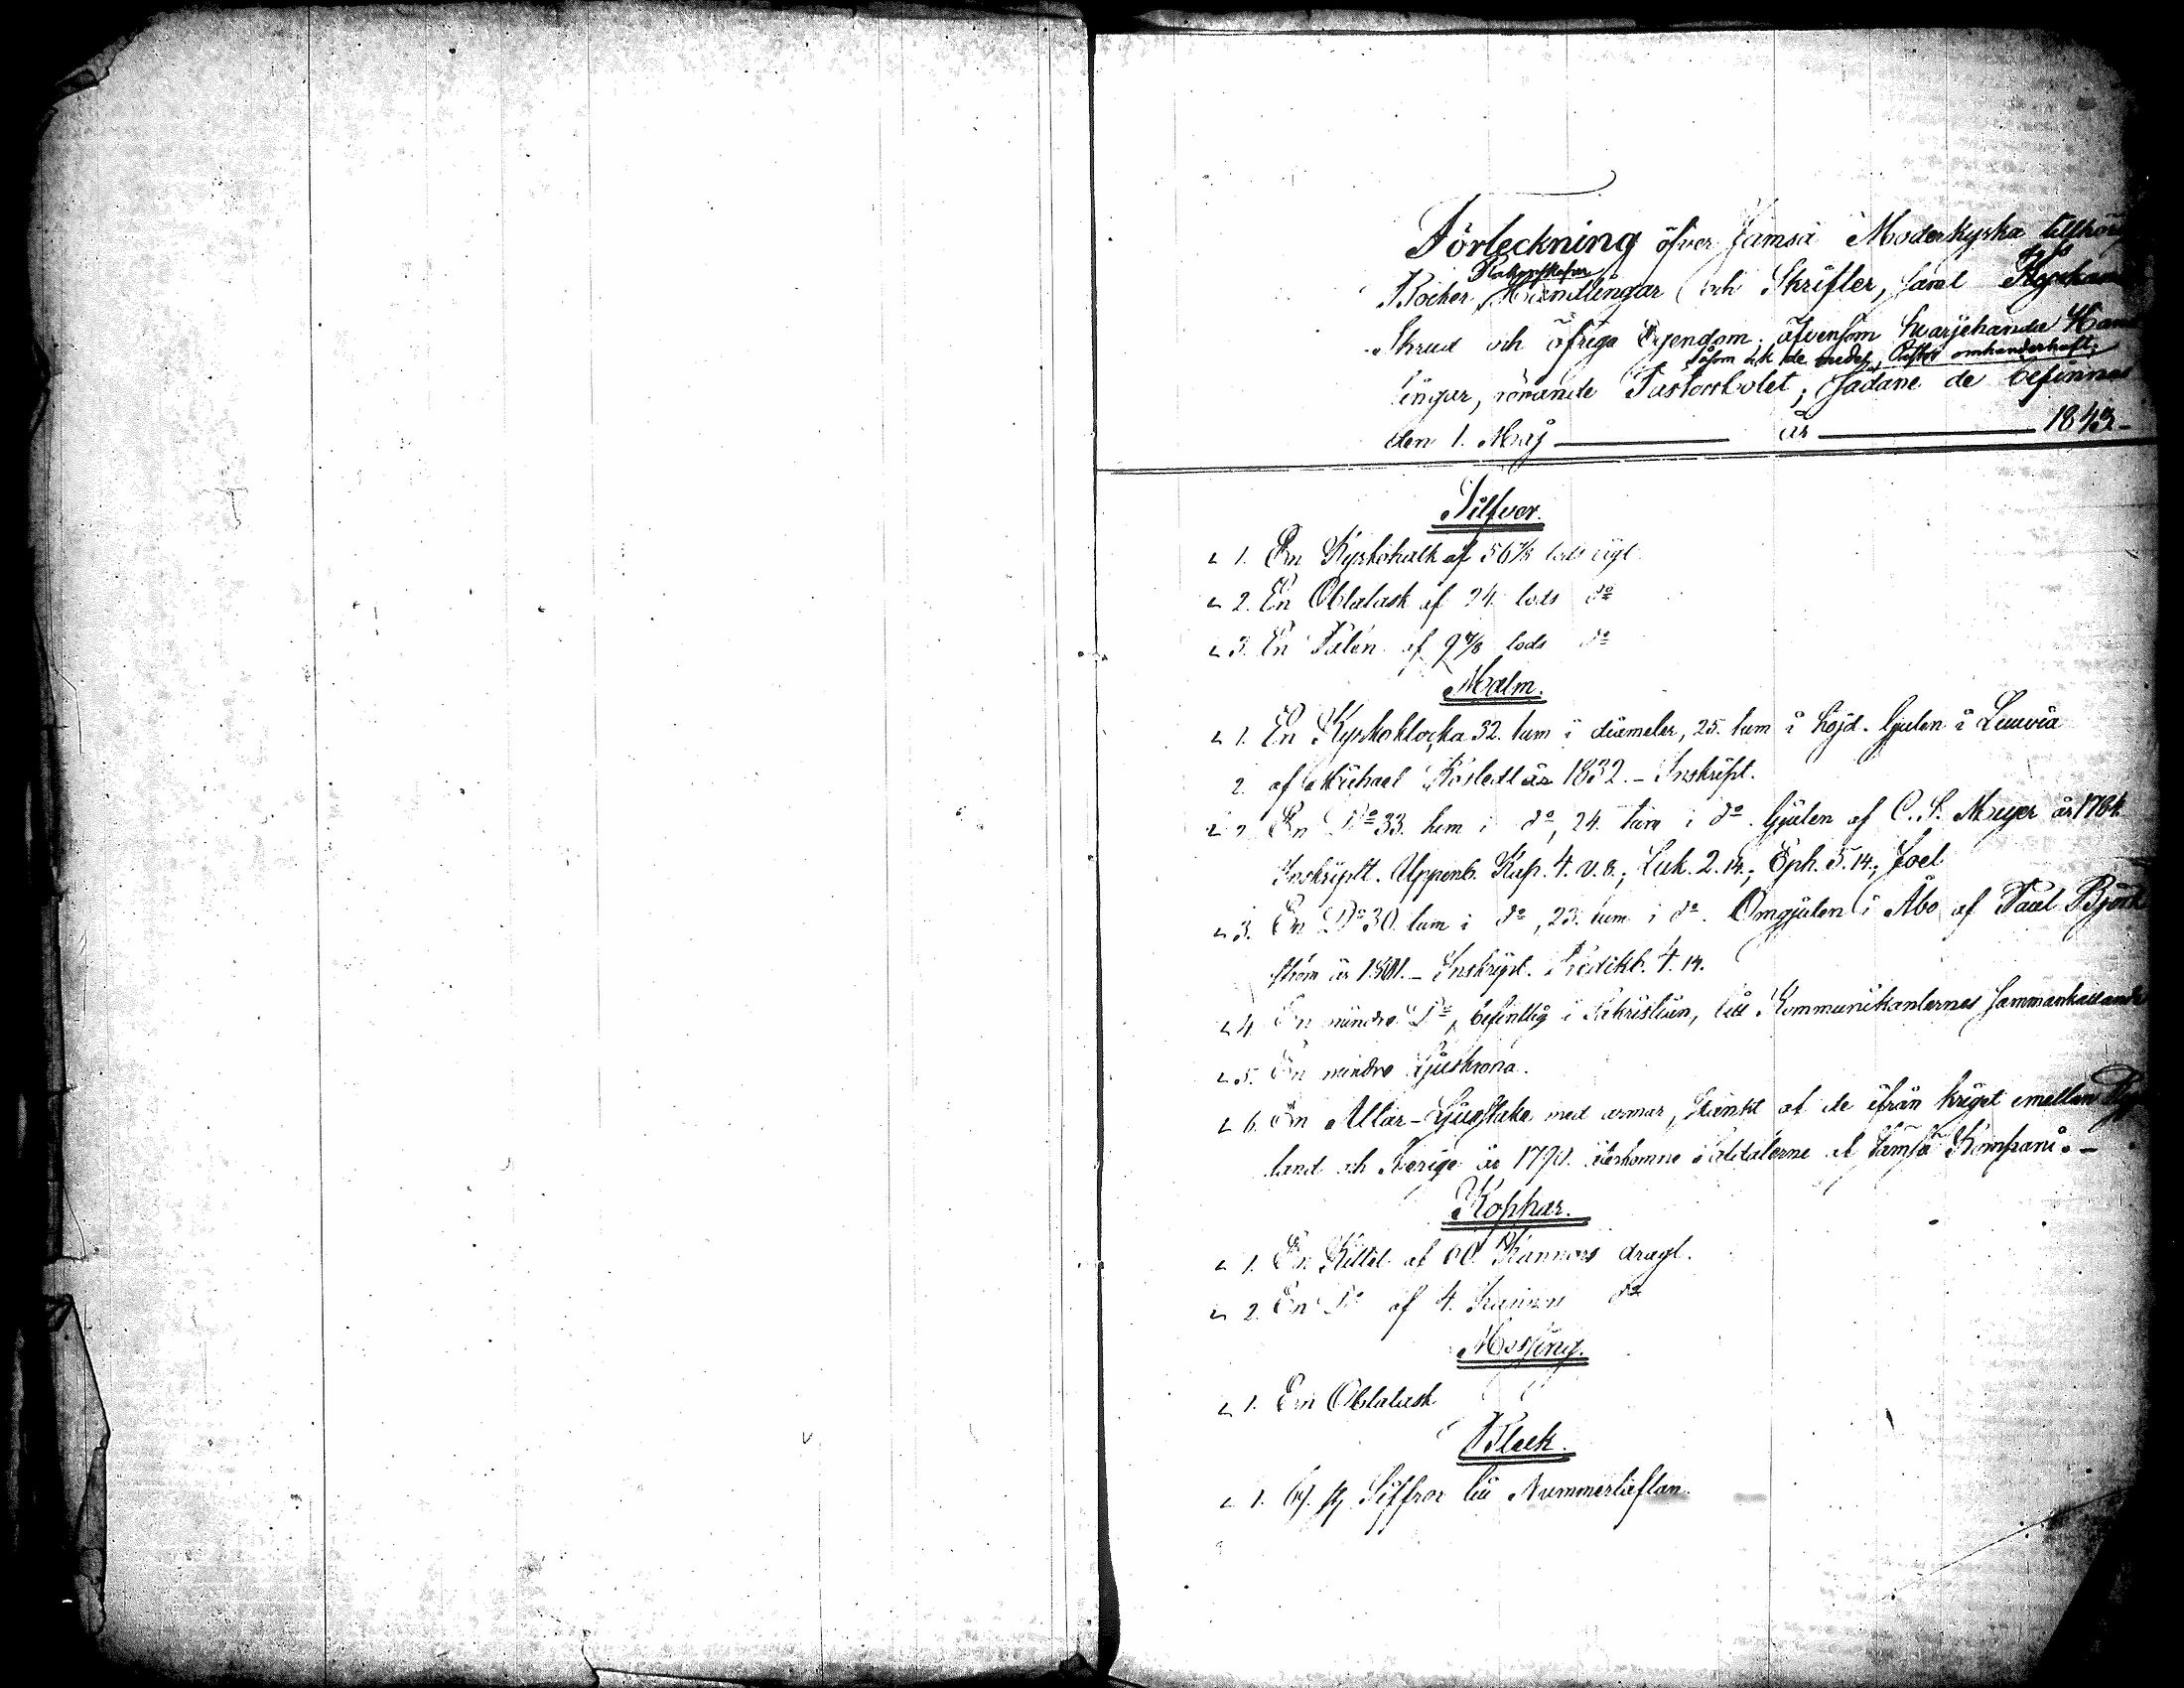 Förteckning öfver Jämsä Moderkyrka tillhör
Böcker, Handlingar och Skrifter, samt
Skrud och öfriga Egendom; äfvensom hvarjehanda Hand
såsom ock de Pastor omhänderhaft;
lingar, rörande Pastorsbolet; sådane de befinnas
den 1. Maj — år — 1843.
Silfver.
1. En Kyrkokalk af 56 7/8 lods vigt
2. En Oblatask af 24. lods do
3. En Patén af 9 7/8 lods do
Malm.
1. En Kyrkoklocka 32. tum i diameter, 25. tum i höjd. Gjuten i Luuvia
2. af Michael år 1832. – Inskript.
2. En Do 33. tum i do, 24. tum i do. Gjuten af C. S. Meyer år 1784.
Inskript. Uppenb. Kap. 4. v. 8.; Luk. 2. 14.; Eph. 5. 14.; Joel
3. En Do 30. tum i do, 23. tum i do. Omgjuten i Åbo af Paul Björk
ström år 1801. – Inskript. Predikb. 4. 14.
4. En mindre Do, befintlig i Sakristian, till Kommunikanternes sammankallande
5. En mindre Ljuskrona.
6. En Altar-Ljusstake med armar, skänkt af de ifrån kriget emellan Ryss
land och Sverige år 1790. återkomne Soldaterne af Jämsä Kompani. –
Koppar.
1. En Kittel af 60. Kannors dragt.
2. En Do af 4. Kannors do
Messing.
1. En Oblatask
Bleck.
1. 69. st. Siffror till Nummertaflan.